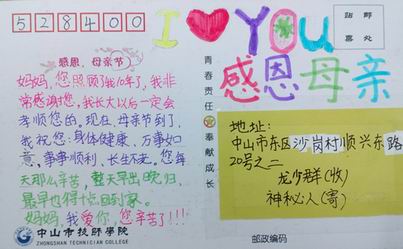 528400
I ❤ You
贴邮
票处
感恩母亲
感恩，母亲节
妈妈，您照顾了我10年了，我非
常感谢您，我长大以后一定会
孝顺您的。现在，母亲节到了，
我祝您：身体健康、万事如
意、事事顺利、长生不老。您每
天那么辛苦，整天早出晚归，
最早也得
回到家。
妈妈，我爱你，您辛苦了!!!
青春责任
奉献成长
地址：
中山市东区沙岗村顺兴东路
20号之二
龙少群(收)
神秘人(寄)
中山市技师学院
ZHONGSHAN TECHNICIAN COLLEGE
邮政编码